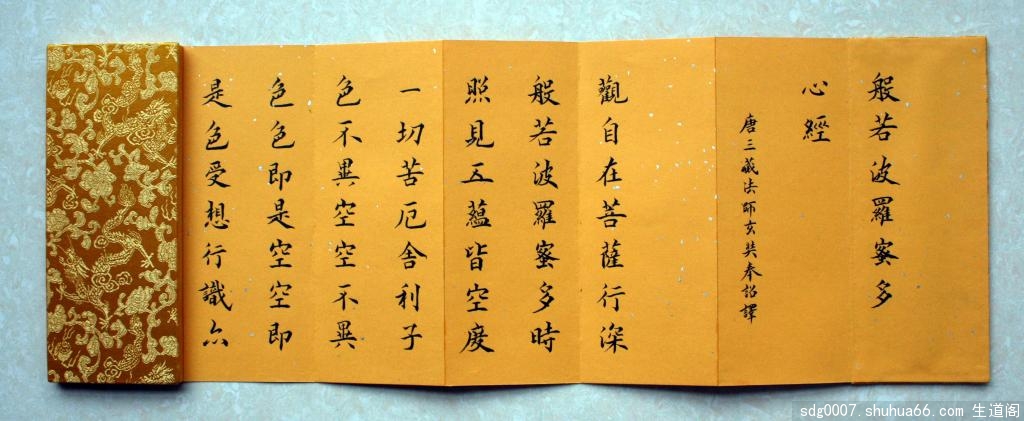 般若波羅蜜多
心經
唐三藏法師玄奘奉詔譯
觀自在菩薩行深
般若波羅蜜多時
照見五蘊皆空度
一切苦厄舍利子
色不異空空不異
色色即是空空即
是色受想行識亦
sdg0007.shuhua66.com 生道阁